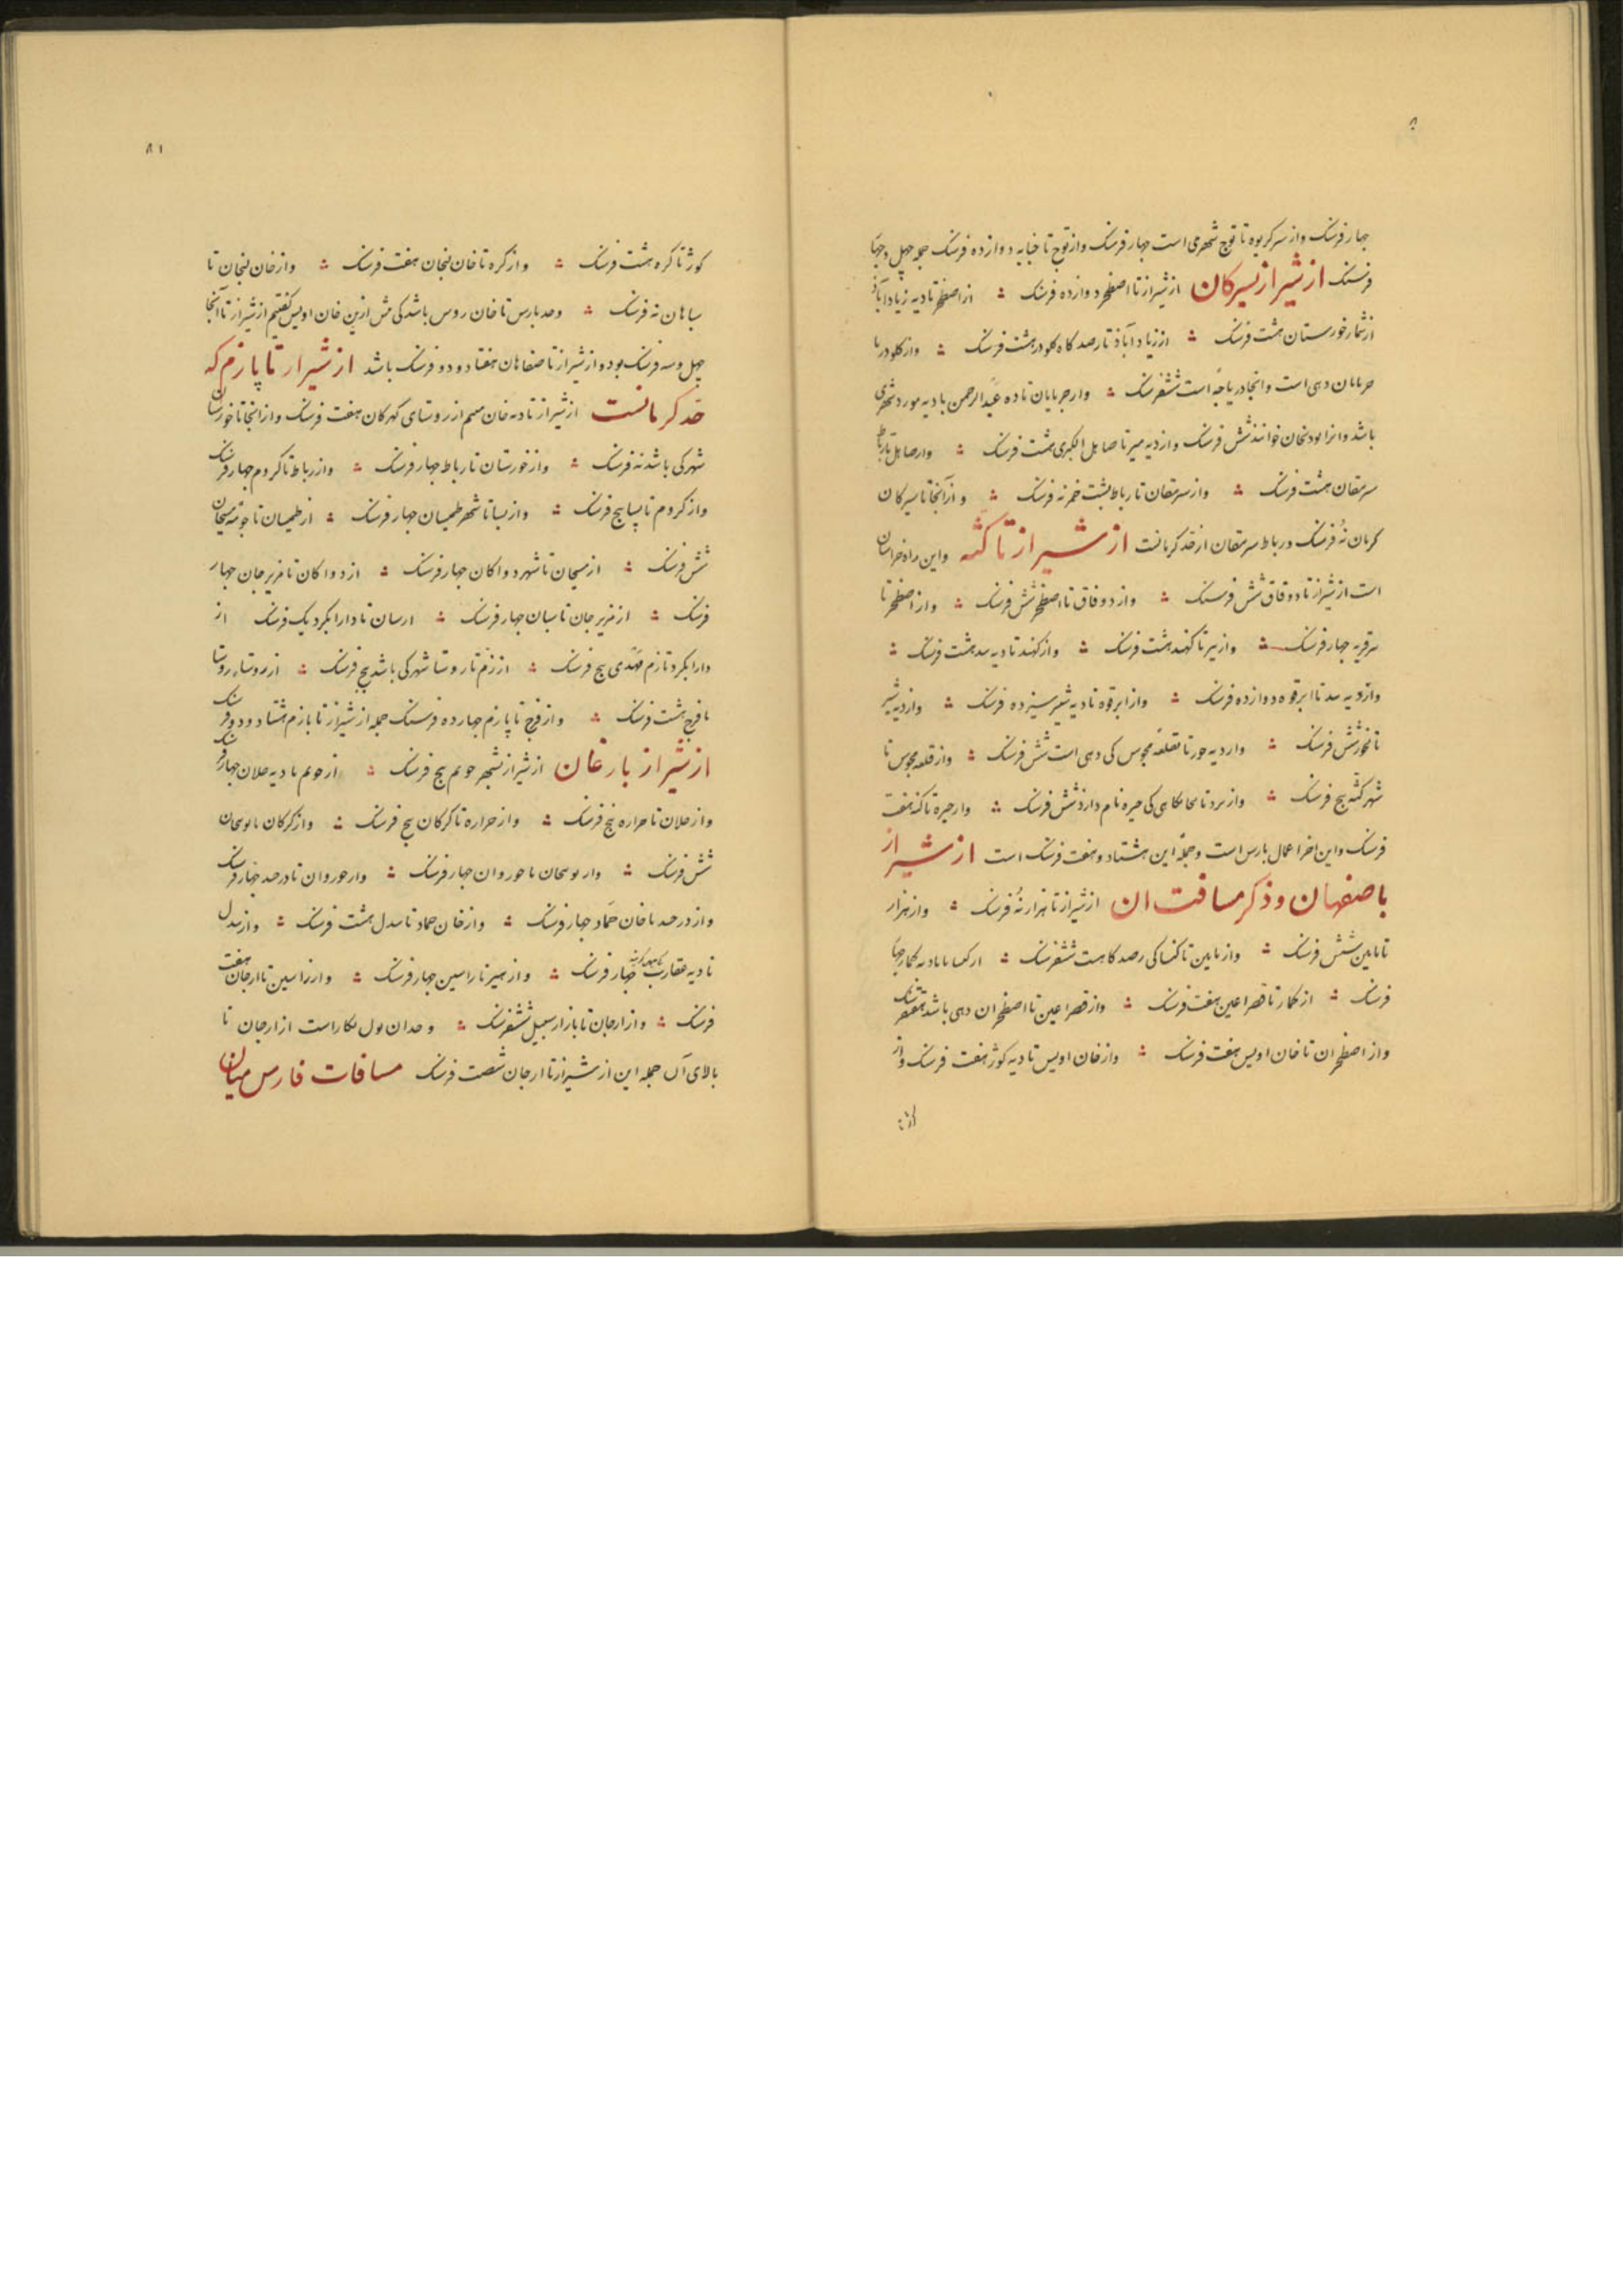 جهار فرسنک واز سر کریوه تا توج شهری است جهار فرسنک واز توج تا جنابه دوازده فرسنک جمله چهل وجهار
فرسنک از شیراز بسیرکان از شیراز تا اصطخر دوازده فرسنک از اصطخر تا دیه زیادآباد
از شمار خورستان هشت فرسنک از زیادآباد تا رصدکاه کلودر هشت فرسنک واز کلودر با
حربابان دهی است وانجا دریاجه است ششفرسنک واز حربایان تا ده عبدالرحمن با دیه مورد شهری
باشد وانرا بودنجان خوانند شش فرسنک واز دیه میر تا صاهل الکبری هشت فرسنک واز صاهل تا رباط
سرمقان هشت فرسنک واز سرمقان تا رباط بشت خم نه فرسنک واز آنجا تا سیرکان
کرمان نه فرسنک ورباط سرمقان از حد کرمانست از شیراز تا کثه واین راه خراسان
است از شیراز تا دوقاق شش فرسنک واز دوقاق تا اصطخر شش فرسنک واز اصطخر تا
سرقریه جهار فرسنک واز بیر تا کهند هشت فرسنک واز کهند تا دیه سد هشت فرسنک
واز دیه سد تا ابرقوه دوازده فرسنک واز ابرقوه تا دیه شیر سیزده فرسنک واز دیه شیر
تا جور شش فرسنک واز دیه جور تا قلعه مجوس کی دهی است شش فرسنک واز قلعه مجوس تا
شهر کثه پنج فرسنک واز یزد تا جایکاهی کی حیره نام دارد شش فرسنک واز حیره تا کنه هفت
فرسنک واین اخر اعمال بارس است وجمله این هشتاد وهفت فرسنک است از شیراز
باصفهان وذکر مسافت ان از شیراز تا هزار نه فرسنک واز هزار
تا ماین شش فرسنک واز ماین تا کنسا کی رصدکاهست ششفرسنک از کمسا با دیه کمار جهار
فرسنک از کمار تا قصر اعین هفت فرسنک واز قصر اعین تا اصطخران دهی باشد هفتفرسنک
واز اصطخران تا خان اویس هفت فرسنک واز خان اویس تا دیه کوز هفت فرسنک واز
۸۱
کوز تا کره هشت فرسنک واز کره تا خان لنجان هفت فرسنک واز خان لنجان تا
سباهان نه فرسنک وحد بارس تا خان روس باشد کی بیش ازین خان اویس کفتیم از شیراز تا آنجا
چهل وسه فرسنک بود واز شیراز تا صفاهان هفتاد ودو فرسنک باشد از شیراز تا پارزم که
حد کرمانست از شیراز تا دیه خان میم از روستای کهرکان هفت فرسنک واز انجا تا خورستان
شهرکی باشد نه فرسنک واز خورستان تا رباط جهار فرسنک واز رباط تا کروم جهار فرسنک
واز کروم تا بسا پنج فرسنک واز بسا تا شهر طمیسان جهار فرسنک از طمیسان تا جومه سیجان
شش فرسنک از سیجان تا شهر دواکان جهار فرسنک از دواکان تا مریرجان جهار
فرسنک از مریرجان تا سبان جهار فرسنک از سان تا دارابکرد یک فرسنک از
دارابکرد تا زم مهدی پنج فرسنک از زم تا روستا شهرکی باشد پنج فرسنک از روستا روستا
تا فرج هشت فرسنک واز فرج تا پارزم جهارده فرسنک جمله از شیراز تا بازم هشتاد ودو فرسنک
از شیراز بارغان از شیراز بشهر جویم پنج فرسنک از جویم با دیه خلان جهار فرسنک
واز خلان تا خراره پنج فرسنک واز خراره تا کرکان پنج فرسنک واز کرکان با نوبنجان
شش فرسنک واز نوبنجان تا خوروان جهار فرسنک واز خوروان تا درخید جهار فرسنک
واز درخید تا خان حماد جهار فرسنک واز خان حماد تا بندل هشت فرسنک واز بندل
تا دیه عقارب جهار فرسنک واز هیر تا راسین جهار فرسنک واز راسین تا ارجان هفت
فرسنک واز ارجان تا بازار سبیل ششفرسنک وحد ان بول هکاراست از ارجان تا
بالای آن جمله این از شیراز تا ارجان شصت فرسنک مسافات فارس میان